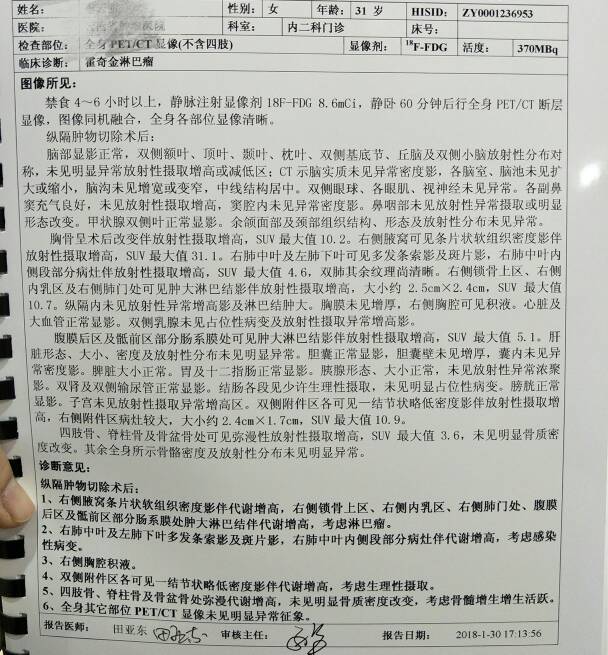 姓名： 性别： 女 年龄： 31 岁 HISID： ZY0001236953
医院： 医院 科室： 内二科门诊 床号：
检查部位： 全身 PET/CT 显像(不含四肢) 显像剂： 18F-FDG 活度： 370MBq
临床诊断： 霍奇金淋巴瘤
图像所见：
禁食 4～6 小时以上，静脉注射显像剂 18F-FDG 8.6mCi，静卧 60 分钟后行全身 PET/CT 断层
显像，图像同机融合，全身各部位显像清晰。
纵隔肿物切除术后：
脑部显影正常，双侧额叶、顶叶、颞叶、枕叶、双侧基底节、丘脑及双侧小脑放射性分布对
称，未见明显异常放射性摄取增高或减低区；CT 示脑实质未见异常密度影，各脑室、脑池未见扩
大或缩小，脑沟未见增宽或变窄，中线结构居中。双侧眼球、各眼肌、视神经未见异常。各副鼻
窦充气良好，未见放射性摄取增高，窦腔内未见异常密度影。鼻咽部未见放射性异常摄取或明显
形态改变。甲状腺双侧叶正常显影。余颌面部及颈部组织结构、形态及放射性分布未见异常。
胸骨呈术后改变伴放射性摄取增高，SUV 最大值 10.2。右侧腋窝可见条片状软组织密度影伴
放射性摄取增高，SUV 最大值 31.1。右肺中叶及左肺下叶可见多发条索影及斑片影，右肺中叶内
侧段部分病灶伴放射性摄取增高，SUV 最大值 4.6，双肺其余纹理尚清晰。右侧锁骨上区、右侧
内乳区及右侧肺门处可见肿大淋巴结影伴放射性摄取增高，大小约 2.5cm×2.4cm，SUV 最大值
10.7。纵隔内未见放射性异常增高影及淋巴结肿大。胸膜未见增厚，右侧胸腔可见积液。心脏及
大血管正常显影。双侧乳腺未见占位性病变及放射性摄取异常增高影。
腹膜后区及骶前区部分肠系膜处可见肿大淋巴结影伴放射性摄取增高，SUV 最大值 5.1。肝
脏形态、大小、密度及放射性分布未见明显异常。胆囊正常显影，胆囊壁未见增厚，囊内未见异
常密度影。脾脏大小正常。胃及十二指肠正常显影。胰腺形态、大小正常，未见放射性异常浓聚
影。双肾及双侧输尿管正常显影。结肠各段见少许生理性摄取，未见明显占位性病变。膀胱正常
显影。子宫未见放射性摄取异常增高区。双侧附件区各可见一结节状略低密度影伴放射性摄取增
高，右侧附件区病灶较大，大小约 2.4cm×1.7cm，SUV 最大值 10.9。
四肢骨、脊柱骨及骨盆骨处可见弥漫性放射性摄取增高，SUV 最大值 3.6，未见明显骨质密
度改变。其余全身所示骨骼密度及放射性分布未见明显异常。
诊断意见：
纵隔肿物切除术后：
1、右侧腋窝条片状软组织密度影伴代谢增高，右侧锁骨上区、右侧内乳区、右侧肺门处、腹膜
后区及骶前区部分肠系膜处肿大淋巴结伴代谢增高，考虑淋巴瘤。
2、右肺中叶及左肺下叶多发条索影及斑片影，右肺中叶内侧段部分病灶伴代谢增高，考虑感染
性病变。
3、右侧胸腔积液。
4、双侧附件区各可见一结节状略低密度影伴代谢增高，考虑生理性摄取。
5、四肢骨、脊柱骨及骨盆骨处弥漫代谢增高，未见明显骨质密度改变，考虑骨髓增生增生活跃。
6、全身其它部位 PET/CT 显像未见明显异常征象。
报告医师： 田亚东 田亚东 审核主任： 报告日期： 2018-1-30 17:13:56